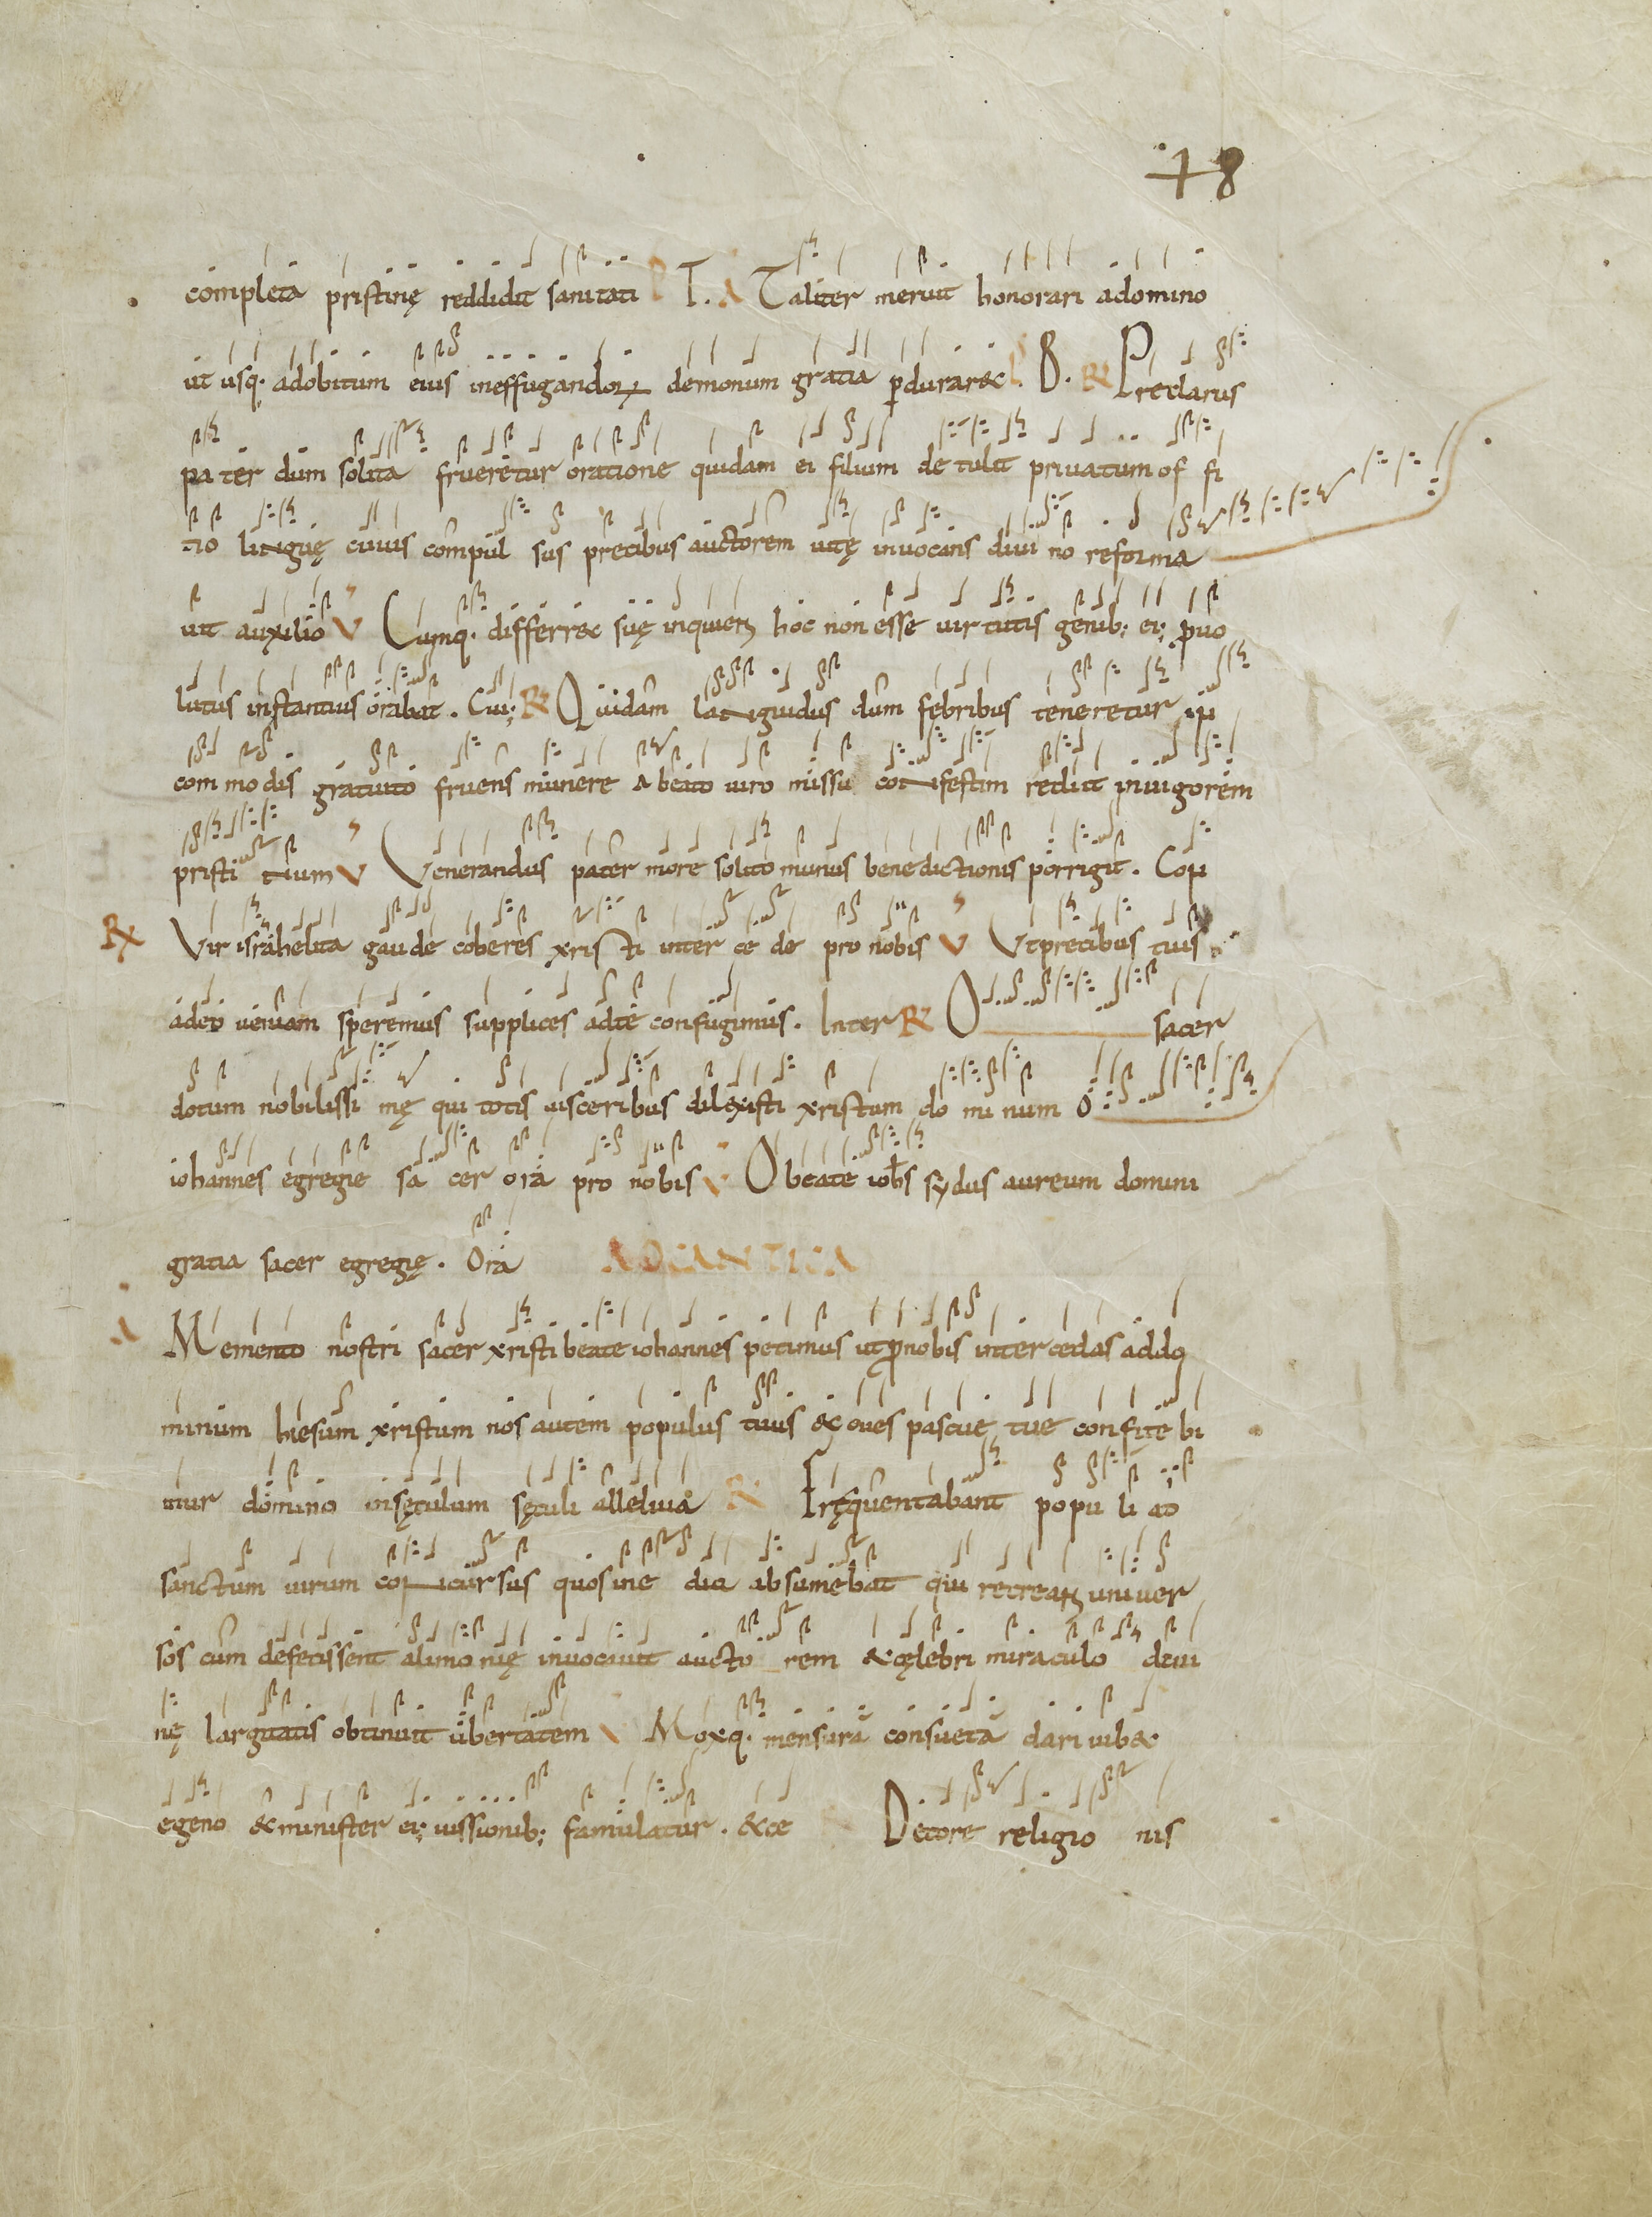 48
completa pristinę reddidit sanitati P T. A Taliter meruit honorari adomino
ut usq. adobitum eius ineffugandoꝝ demonum gratia ꝑdurar&. P B. R Preclarus
pa ter dum solita frueretur oratione quidam ei filium de tulit priuatum of fi
tio linguę cuius compul sus precibus auctorem uitę inuocans diui no reforma
uit auxilio V Cumq. differr& suę inquiens hoc non esse uirtutis genib; ei; ꝓuo
lutus instantius orabat. Cui; R Quidam languidus dum febribus teneretur in
com modis gratuito fruens munere a beato uiro missu confestim rediit inuigorem
pristi num V Venerandus pater more solito munus benedictionis porrigit. Con
R Vir israhelita gaude coheres xristi inter ce de pro nobis V Vtprecibus tuis
adeo ueniam speremus supplices adte confugimus. Inter R O sacer
dotum nobilissi mę qui totis uisceribus dilexisti xristum do mi num o
iohannes egregie sa cer ora pro nobis V O beate iohs sydus aureum domini
gratia sacer egregię. Ora ADCANTICA
A Memento nostri sacer xristi beate iohannes petimus utꝓnobis intercedas addo
minum hiesum xristum nos autem populus tuus & oues pascue tue confitebi
mur domino insęculum sęculi alleluia R Fręquentabant popu li ad
sanctum uirum concursus quos ine dia absumebat qui recreans uniuer
sos cum defecissent alimo nię inuocauit aucto rem & cęlebri miraculo diui
nę largitatis obtinuit ubertatem V Moxq. mensurā consuetā dari iub&
egeno & minister ei; iussionib; famulatur. & ce R Decore religio nis